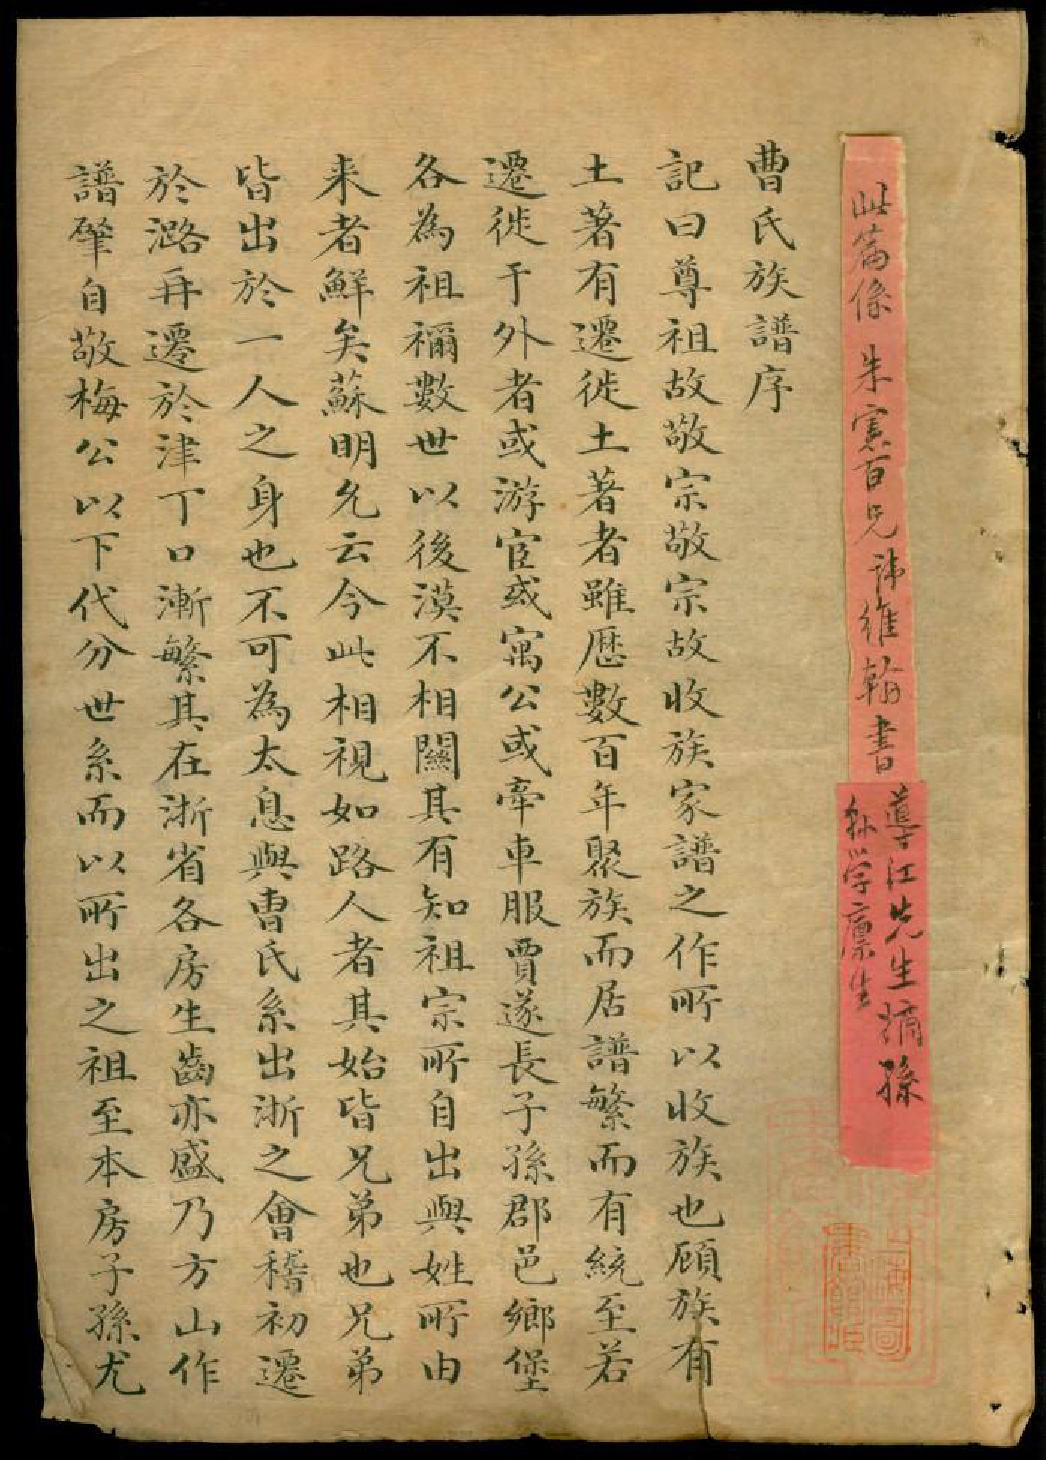 此篇係 朱憲百兄 諱維翰書
導江先生嫡孫
孫學廩生
曹氏族譜序
記曰尊祖故敬宗敬宗故收族家譜之作所以收族也顧族有
土著有遷徙土著者雖歷數百年聚族而居譜繁而有統至若
遷徙于外者或游宦或寓公或牽車服賈遂長子孫郡邑鄉堡
各為祖禰數世以後漠不相關其有知祖宗所自出與姓所由
来者鮮矣蘇明允云今此相視如路人者其始皆兄弟也兄弟
皆出於一人之身也不可為太息與曹氏系出浙之會稽初遷
於潞再遷於津丁口漸繁其在浙省各房生齒亦盛乃方山作
譜肇自敬梅公以下代分世系而以所出之祖至本房子孫尤